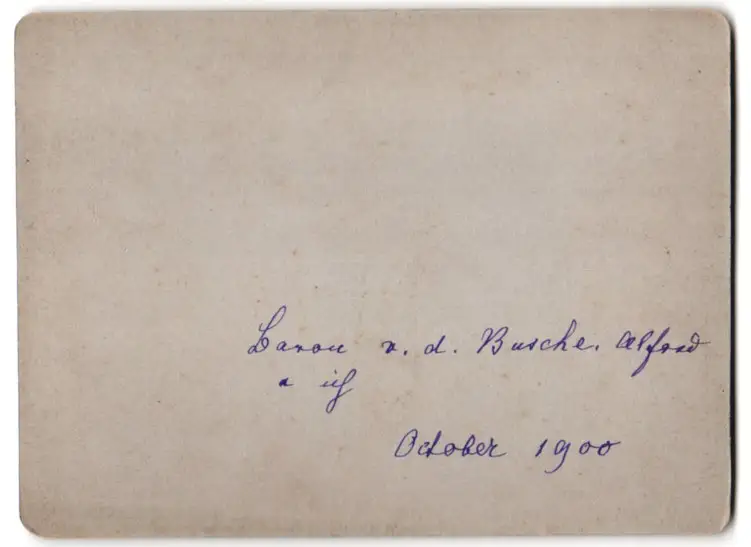 Baron v. d. Busche. Alfred
u ich
October 1900